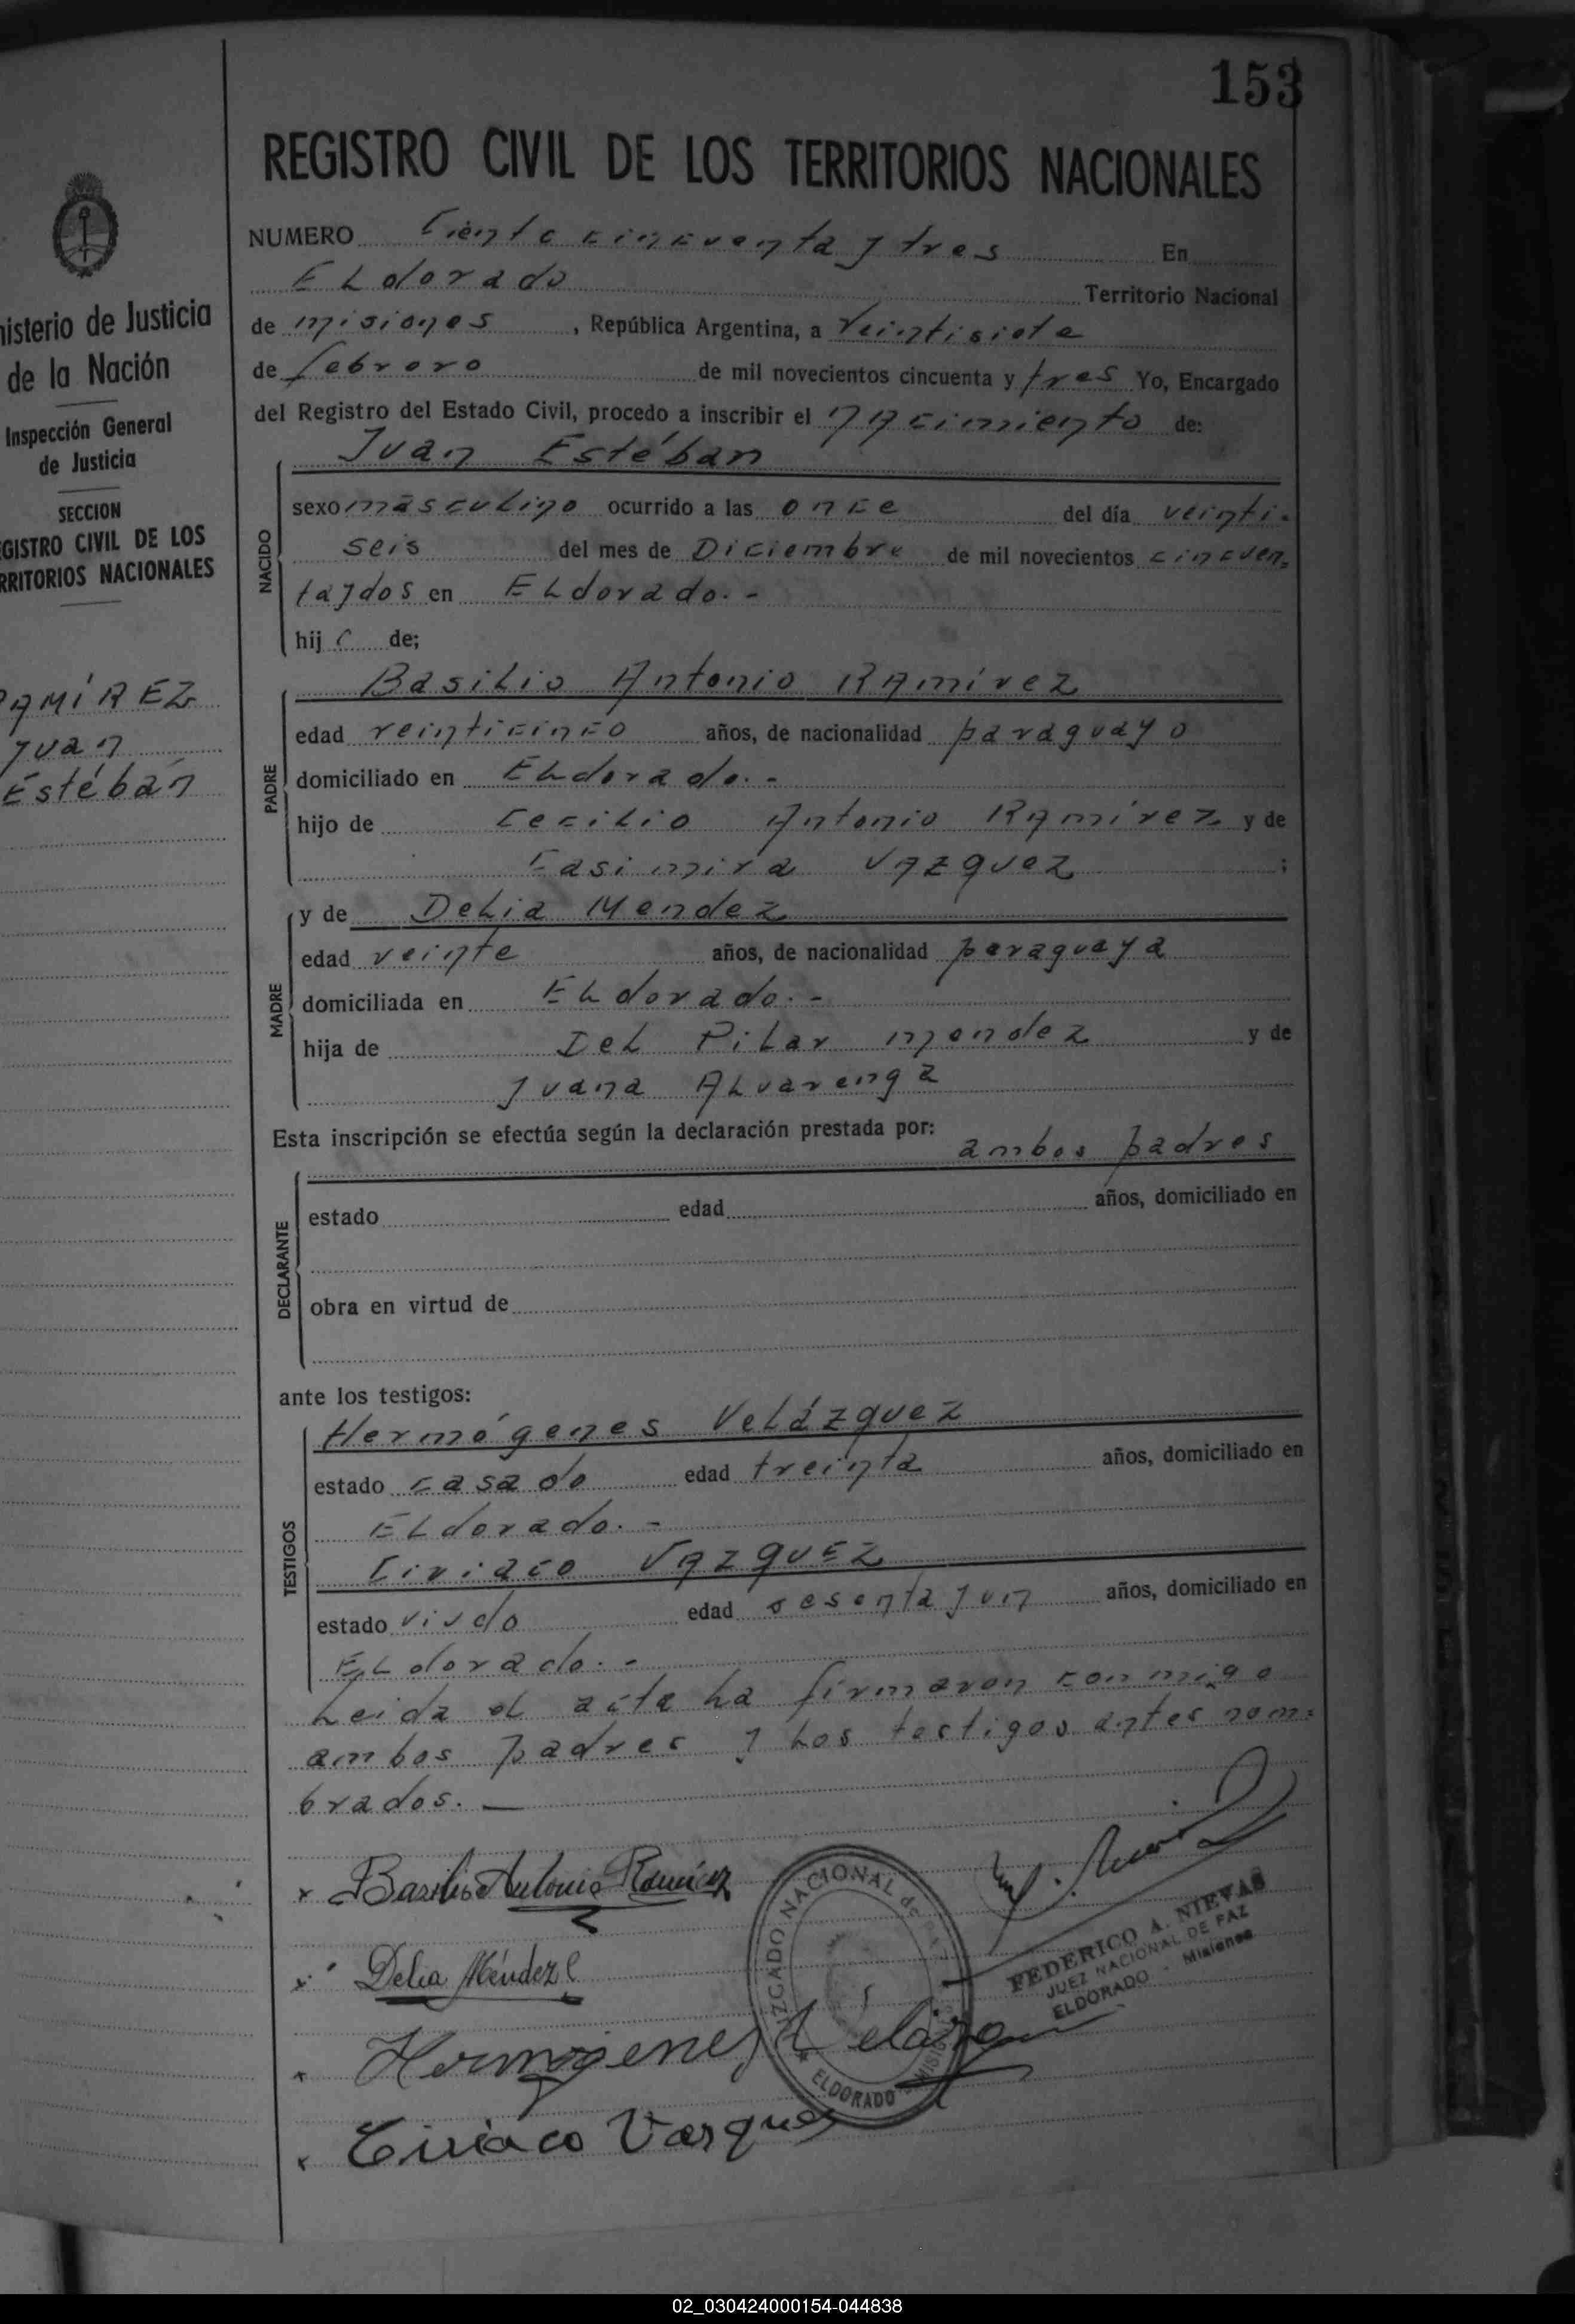 153
REGISTRO CIVIL DE LOS TERRITORIOS NACIONALES
NUMERO Ciento cincuenta y tres En
ELdorado Territorio Nacional
de misiones, República Argentina, a Veintisiete
de febrero de mil novecientos cincuenta y tres Yo, Encargado
del Registro del Estado Civil, procedo a inscribir el nacimiento de:
Juan Estéban
NACIDO
sexo masculino ocurrido a las once del día veinti-
seis del mes de Diciembre de mil novecientos cincuen-
ta y dos en ELdorado.-
hijo de;
PADRE
Basilio Antonio Ramírez
edad veinticinco años, de nacionalidad paraguayo
domiciliado en ELdorado.-
hijo de Cecilio Antonio Ramírez y de
Casimira Vazquez ;
MADRE
y de Delia Mendez
edad veinte años, de nacionalidad paraguaya
domiciliada en ELdorado.-
hija de Del Pilar mendez y de
Juana Alvarenga
Esta inscripción se efectúa según la declaración prestada por:
ambos padres
DECLARANTE
estado edad años, domiciliado en
obra en virtud de
ante los testigos:
TESTIGOS
Hermógenes Velázquez
estado casado edad treinta años, domiciliado en
ELdorado.-
Ciriaco Vazquez
estado viudo edad sesenta y un años, domiciliado en
ELdorado.-
Leida el acta la firmaron conmigo
ambos padres y los testigos antes nom=
brados.—
x Basilio Antonio Ramírez
x Delia Méndez
x Hermogenes Velazq
x Ciriaco Vasques
JUZGADO NACIONAL de PAZ
ELDORADO MISIONES
FEDERICO A. NIEVAS
JUEZ NACIONAL DE PAZ
ELDORADO - Misiones
nisterio de Justicia
de la Nación
Inspección General
de Justicia
SECCION
EGISTRO CIVIL DE LOS
RRITORIOS NACIONALES
RAMÍREZ
Juan
Estéban
02_030424000154-044838